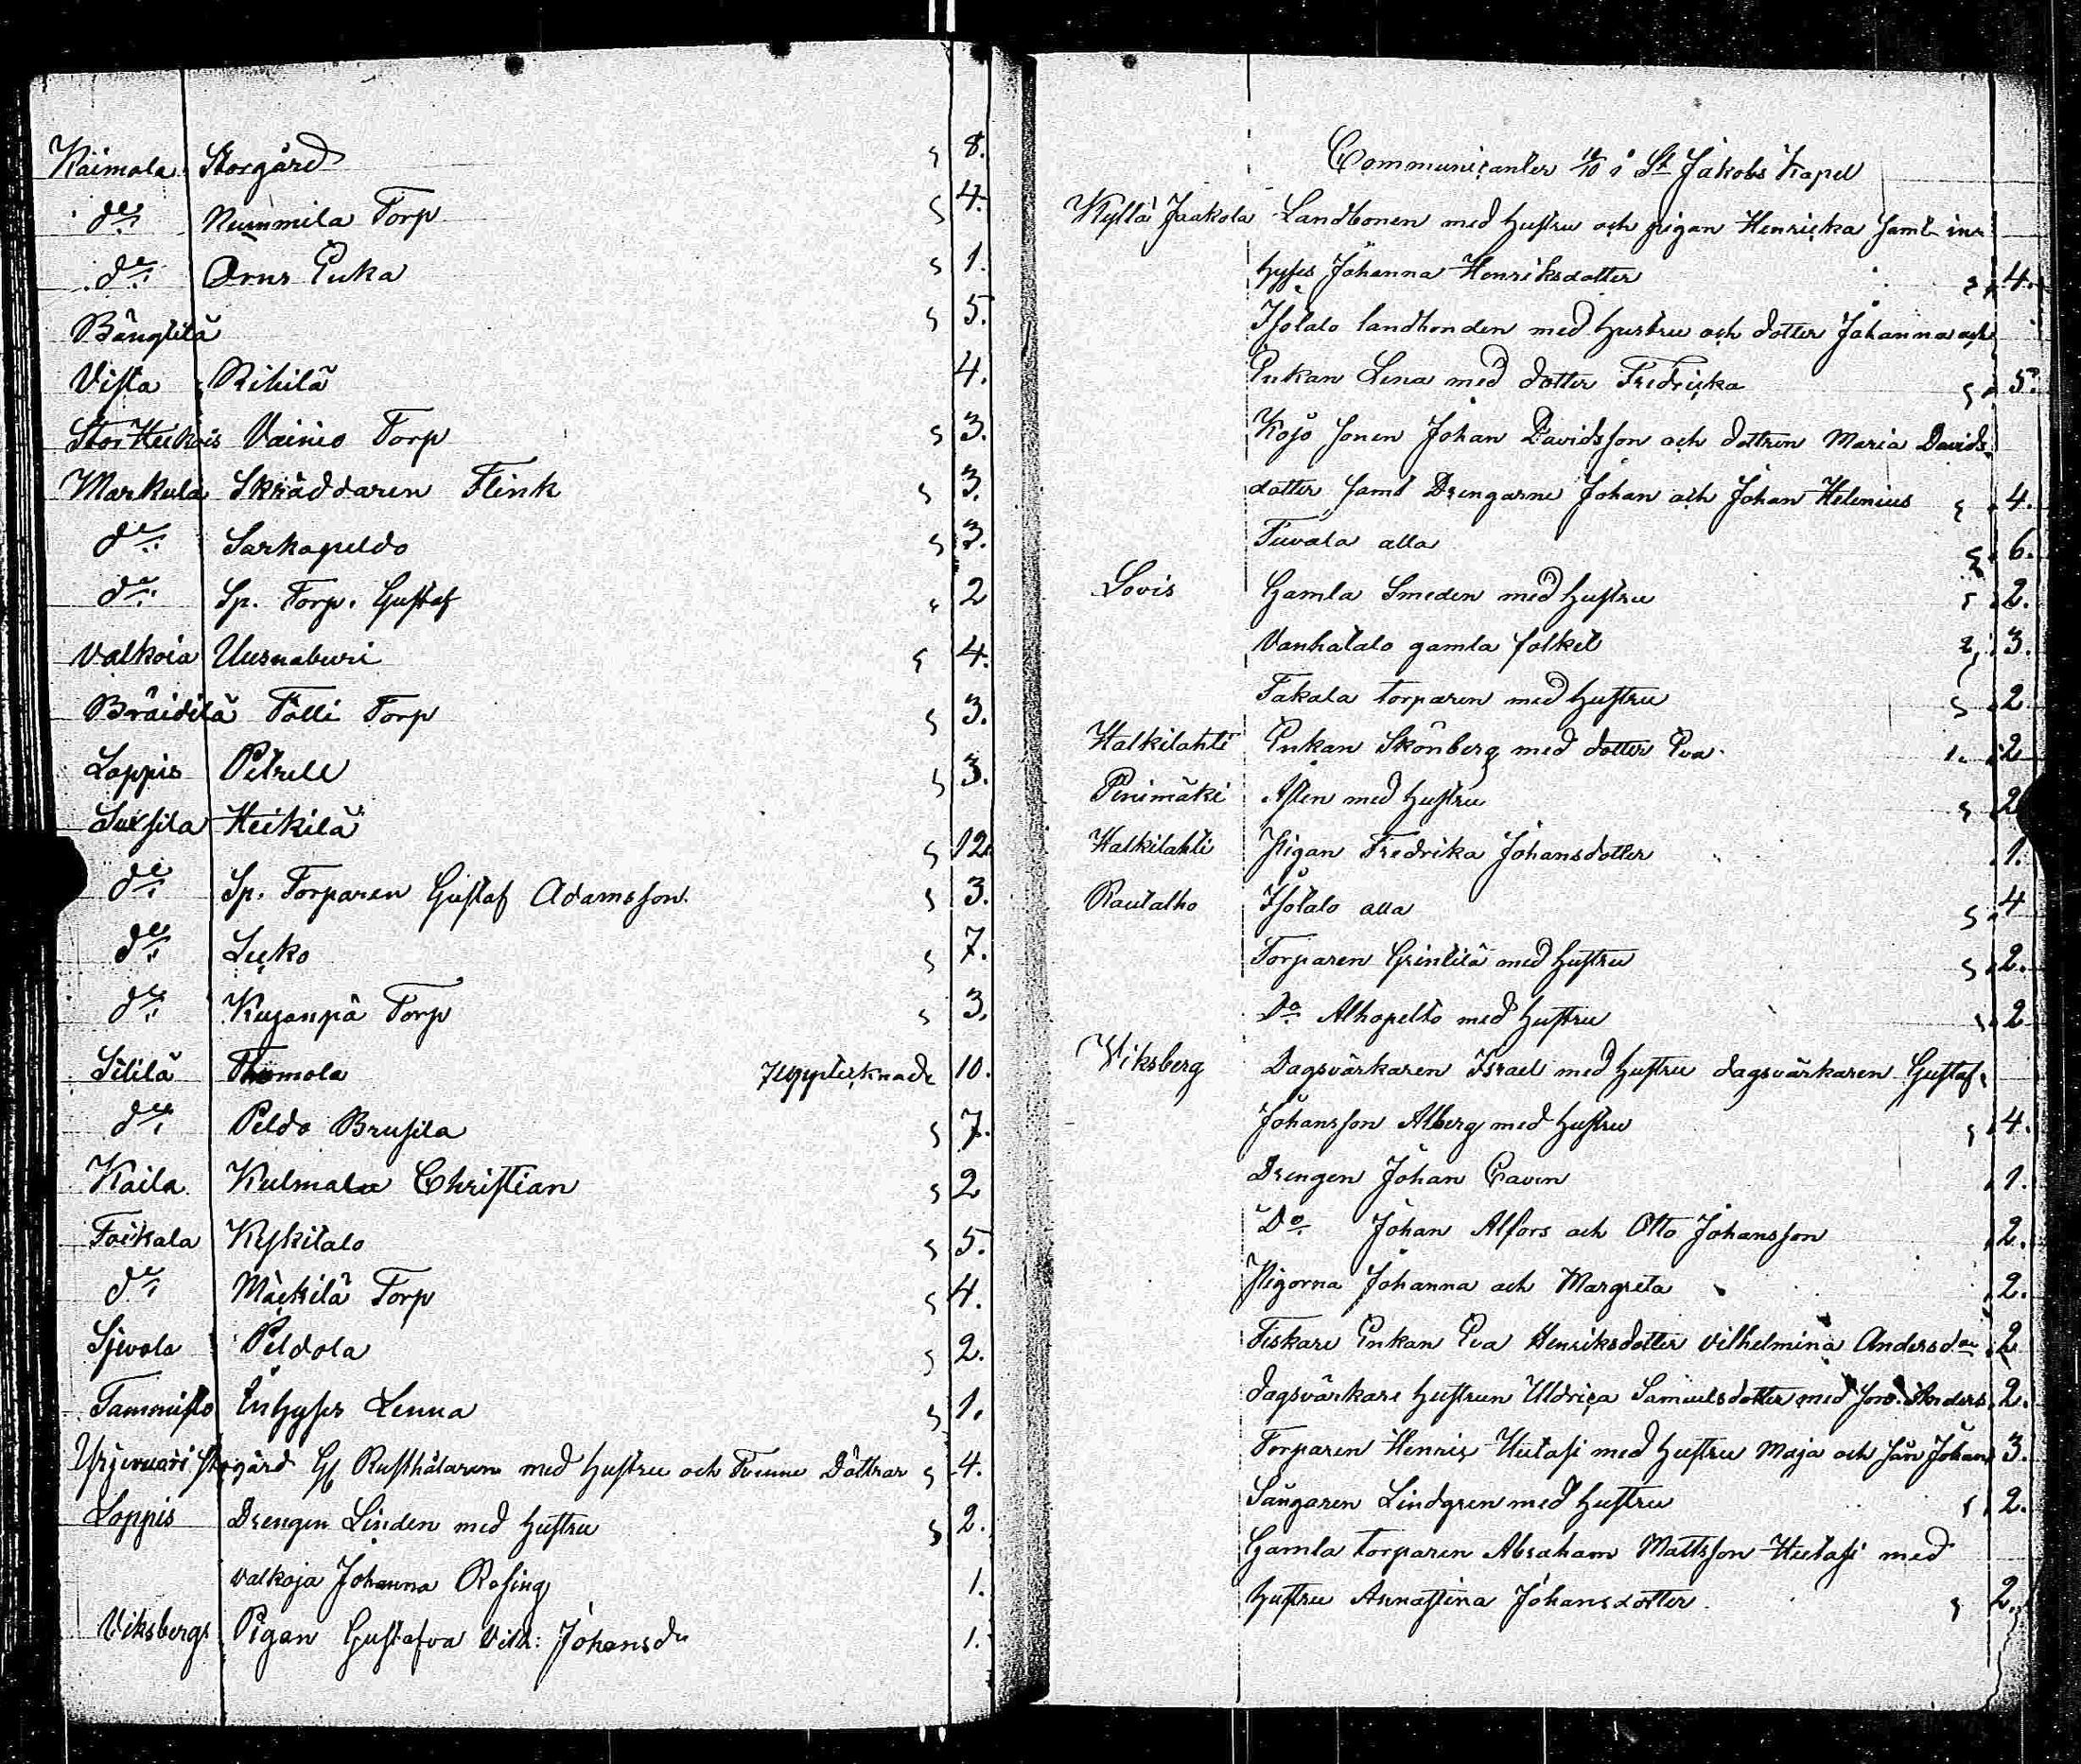 Käimala Storgård s 8.
do Nummila Torp s 4.
do Orns Enka s 1.
Bängtilä s 5.
Vista Rihilä 4.
Stor Heikois Vainio Torp s 3.
Markula Skräddaren Flink s 3.
do Sarkapeldo s 3.
do Sp. Torp. Gustaf s 2
Valkoia Uusnaburi s 4.
Bräidilä Tölli Torp s 3.
Loppis Petrell s 3.
Suxsila Heikilä s 12.
do Sp. Torparen Gustaf Adamsson s 3.
do Lucko s 7.
do Kujanpä Torp s 3.
Sililä Thomola 7 upptecknade 10.
do Peldo Brusila s 7.
Kaila Kulmala Christian s 2
Toikala Keskitalo s 5.
do Mäckilä Torp s 4.
Sjevola Peldola s 2.
Tammisto Inhyses Lenna s 1.
Yrjenvari Storgård Gl Rusthålaren med hustru och Tvenne Döttrar s 4.
Loppis Drengen Linden med hustru s 2.
Valkoja Johanna Rosing 1.
Viksberg Pigan Gustafva Vilh: Johansdr 1.
Communicanter i St Jakobs Kapel
Kyllä Jaakola Landbonen med hustru och pigan Henricka samt in
hyses Johanna Henriksdotter 4.
Isotalo landbonden med hustru och dotter Johanna och
Enkan Lena med dotter Fredricka s 5.
Kojo sonen Johan Davidsson och dottren Maria Davids
dotter samt Drengarne Johan och Johan Helenius s 4.
Tuvala alla s 6.
Lovis Gamla Smeden med hustru s 2.
Vanhatalo gamla folket 3.
Takala torparen med hustru s 2
Halkilahti Enkan Skönberg med dotter Eva 1. 2
Penimäki Asten med hustru s 2
Halkilahti Pigan Fredrika Johansdotter 1.
Rautalho Isotalo alla s 4
Torparen Grintilä med hustru s 2.
Do Alhopelto med hustru s 2
Viksberg Dagsvärkaren Israel med hustru dagsvärkaren Gustaf
Johansson Alberg med hustru s 4.
Drengen Johan Eaven 1.
Do Johan Alfors och Otto Johansson 2.
Pigorna Johanna och Margreta 2.
Fiskare Enkan Eva Henriksdotter Vilhelmina Andersdr 2
Dagsvärkare hustrun Uldrica Samuelsdotter med son Anders 2.
Torparen Henric Hutasi med hustru Maja och son Johan 3.
Sångaren Lindgren med hustru s 2.
Gamla torparen Abraham Mattsson Hutasi med
hustru Annastina Johansdotter. s 2.